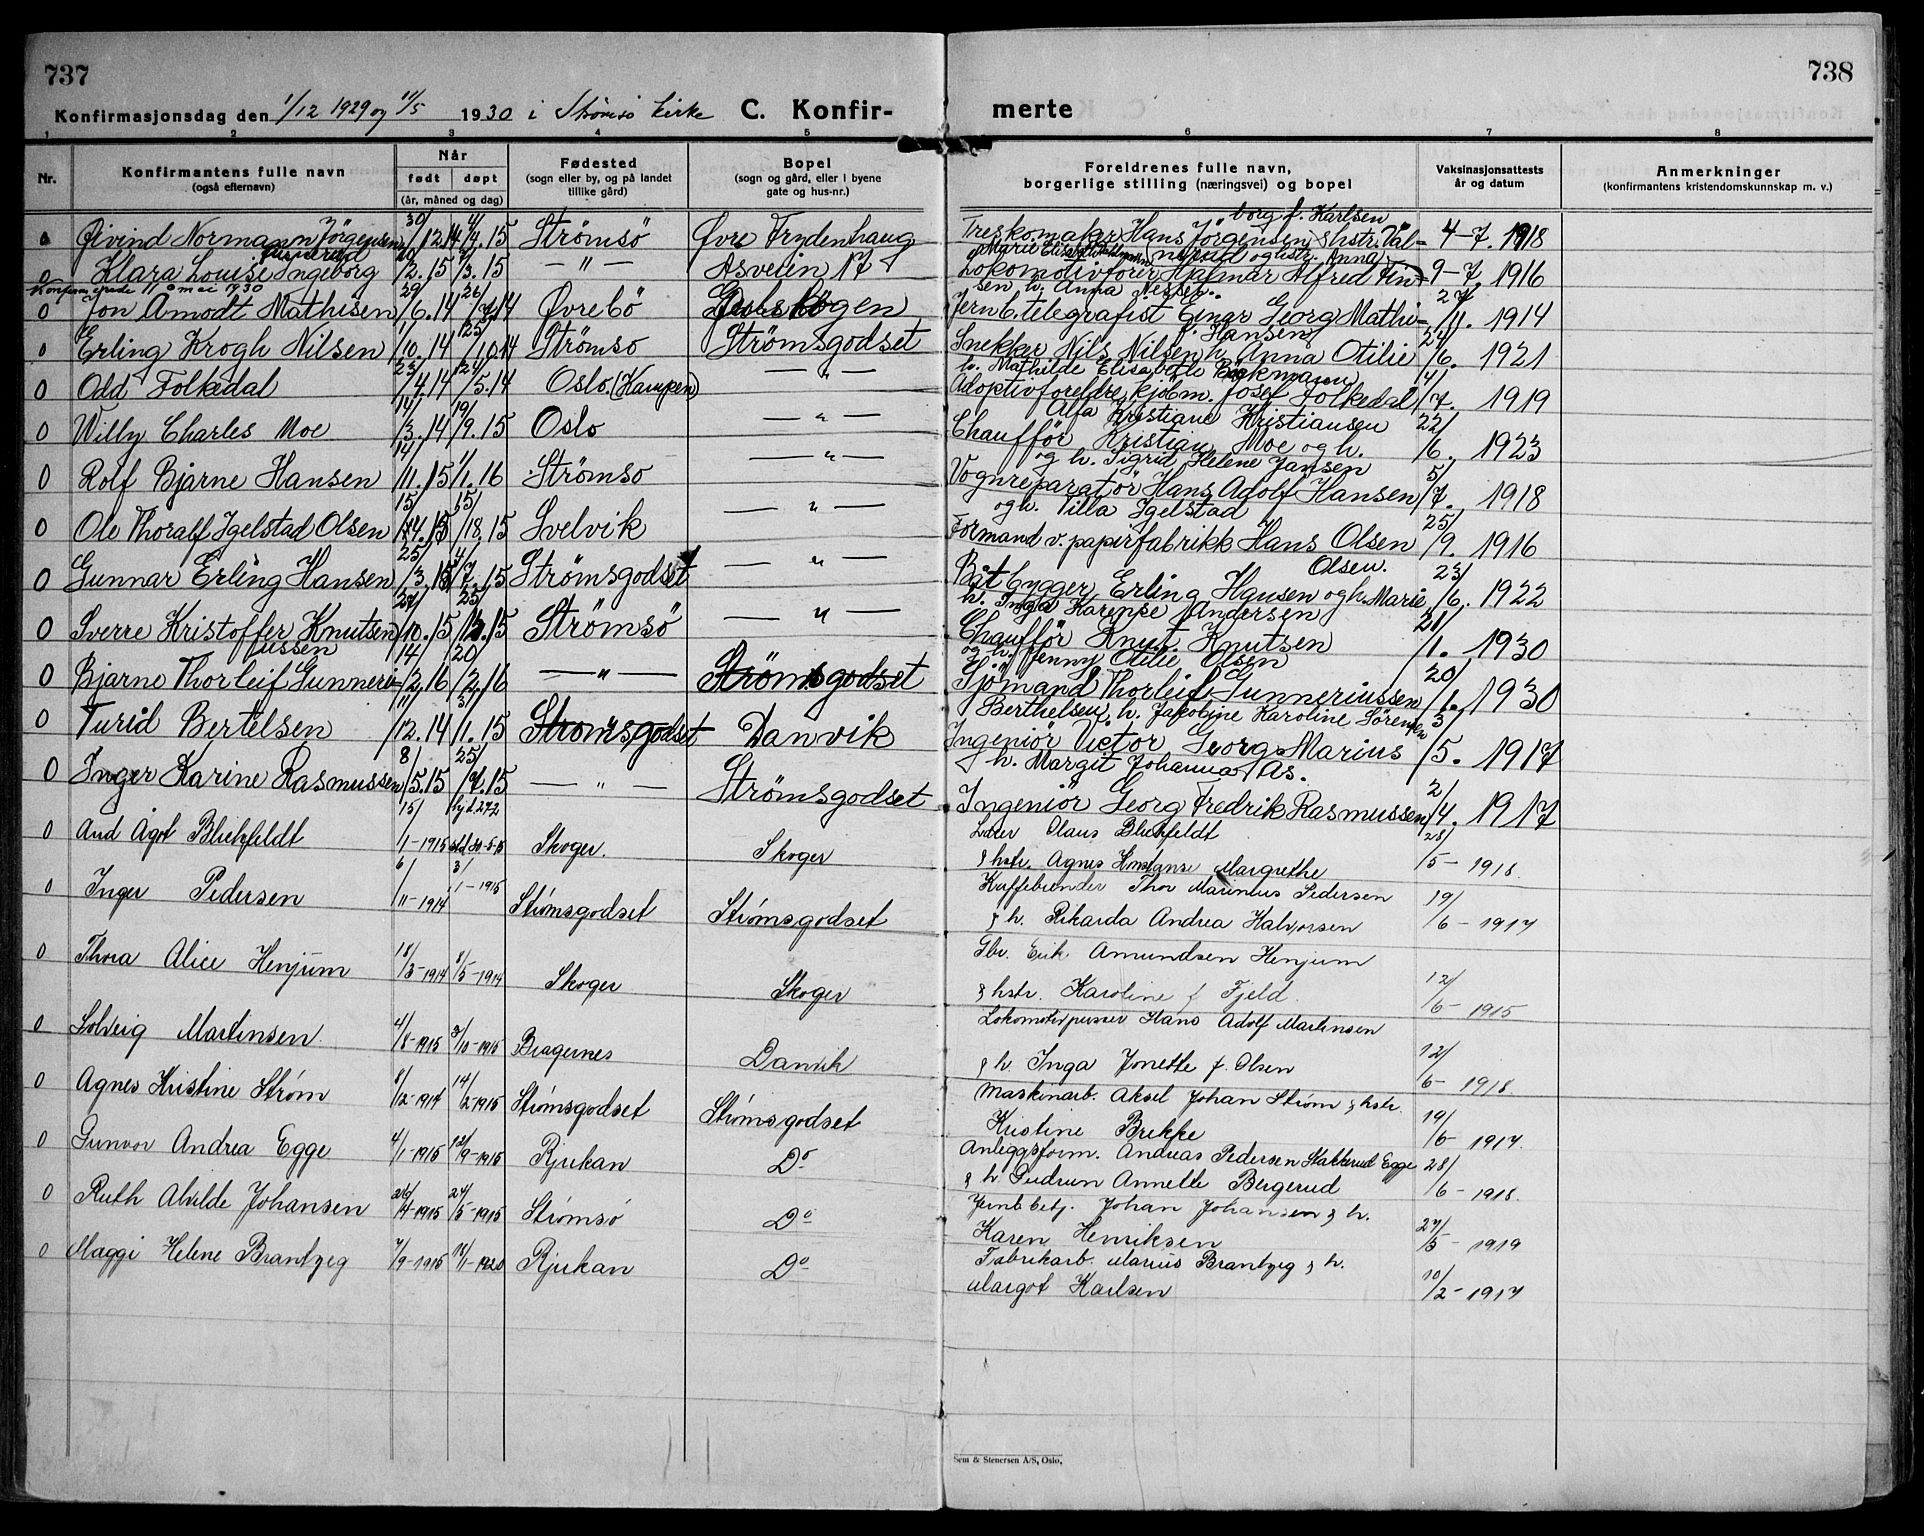 737
738
Konfirmasjonsdag den 1/12 1929 og 11/5 1930 i Strømsø kirke C. Konfir-
merte
1 2 3 4 5 6 7 8
Nr. Konfirmantens fulle navn (også efternavn) Når født døpt (år, måned og dag) Fødested (sogn eller by, og på landet tillike gård) Bopel (sogn og gård, eller i byene gate og hus-nr.) Foreldrenes fulle navn, borgerlige stilling (næringsvei) og bopel Vaksinasjonsattests år og datum Anmerkninger (konfirmantens kristendomskunnskap m. v.)
borg f. Karlsen
Øivind Normann Jörgensen 30/12.14 4/4.15 Strömsö Øvre Frydenhaug Treskomaker Hans Jörgensen & hstr. Val- 4-7. 1918
Klara Louise Ingeborg 2.15 /3.15 — " — Åsveien 17 Lokomotivförer Halmar Alfred Fin- 9-7. 1916
Konfirmerede 11 mai 1930
sen h. Anna
0 Jon Amodt Mathisen 29/6.14 26/7.14 Øvrebö Jernb.telegrafist Einar Georg Mathi- 27/11. 1914
f. Hansen
0 Erling Krogh Nilsen 1/10.14 25/10.14 Strømsø Strømsgodset Snekker Nils Nilsen h. Anna Otilie 24/6. 1921
h. Mathilde Elisabeth Bökmann
0 Odd Folkedal 23/4.14 24/5.14 Oslo (Kampen) — " — Adoptivforeldre kjöbm. Josef Folkedal 14/7. 1919
Alfa Kristiane Kristiansen
0 Willy Charles Moe 14/3.14 19/9.15 Oslo — " — Chaufför Kristian Moe og h. 22/6. 1923
og h. Sigrid Helene Jansen
0 Rolf Bjarne Hansen 14/11.15 1/1.16 Strømsø — " — Vognreparatör Hans Adolf Hansen 5/7. 1918
og h. Villa Igelstad
0 Ole Thoralf Igelstad Olsen 15/4.15 15/8.15 Svelvik — " — Formand v. papirfabrikk Hans Olsen 25/9. 1916
Olsen.
0 Gunnar Erling Hansen 25/3.15 4/7.15 Strømsgodset — " — Båtbygger Erling Hansen og h. Marie 23/6. 1922
h. Inga Karense Andersen
0 Sverre Kristoffer Knutsen /10.15 25/12.15 Strömsö — " — Chaufför Knut Knutsen 21/1. 1930
ussen og h. Jenny Otilie Olsen
0 Bjarne Thorleif Gunneri- 14/2.16 20/2.16 — " — Strømsgodset Sjömand Thorleif Gunneriussen 20/1. 1930
Berthelsen, h. Jakobine Karoline Sörensen
0 Turid Bertelsen 11/12.14 31/1.15 Strømsgodset Danvik Ingeniör Victor Georg Marius 3/5. 1917
h. Margit Johanna As.
0 Inger Karine Rasmussen 8/5.15 25/7.15 — " — Strømsgodset Ingeniör Georg Fredrik Rasmussen 2/4. 1917
0 Aud Agot Blichfeldt 15/1-1915 Skoger. Skoger Lærer Claus Blichfeldt 28/5-1918.
& hstr. Agnes Konstanse Margrethe
0 Inger Pedersen 6/11-1914 3/1-1915 Strømsgodset Strømsgodset Kaffebrænder Thor Marinius Pedersen 19/6-1917
& h. Rikarda Andrea Halvorsen
0 Thora Alice Henjum 18/3-1914 /5-1914 Skoger Skoger Gbr. Erik Amundsen Henjum
& hstr. Karoline f Fjeld. 12/6-1915
0 Solveig Martinsen. 4/8-1915 3/10-1915 Bragernes Danvik Lokomotivpusser Hans Adolf Martinsen
& h. Inga Jonette f. Olsen 12/6-1918.
0 Agnes Kristine Strøm /12-1914 14/2-1915 Strømsgodset Strømsgodset Maskinarb. Aksel Johan Strøm & hstr.
Kristine Brekke 19/6-1917.
0 Gunvor Andrea Egge 4/1-1915 12/9-1915 Rjukan Do Anleggsform. Andreas Pedersen Stakkerud Egge
& h Gudrun Annette Bergerud 28/6-1918.
0 Ruth Alvilde Johansen 26/4-1915 24/5-1915 Strømsø Do Jernb.betj. Johan Johansen & h.
Karen Henriksen 27/5-1919
0 Maggi Helene Brantzeg 7/9-1915 11/1-1920 Rjukan Do Fabrikarb. Marius Brantzeg & h.
Margot Karlsen 10/2-1917
Sem & Stenersen A/S, Oslo.